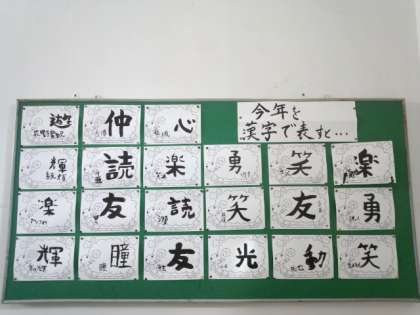 今年を
漢字で表すと…
遊 仲 心
輝 読 楽 勇 笑 楽
楽 友 読 笑 友 勇
輝 瞳 友 光 動 笑